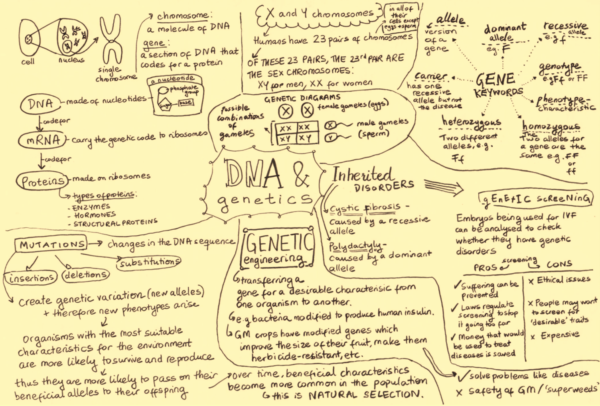 chromosome:
a molecule of DNA
gene:
a section of DNA that
codes for a protein
cell
nucleus
single
chromosome
DNA - made of nucleotides
a nucleotide
phosphate
group
base
codes for
mRNA - carry the genetic code to ribosomes
codes for
Proteins - made on ribosomes
types of proteins:
- ENZYMES
- HORMONES
- STRUCTURAL PROTEINS
X and Y chromosomes
in all of
their
cells except
eggs + sperm
Humans have 23 pairs of chromosomes
OF THESE 23 PAIRS, THE 23rd PAIR ARE
THE SEX CHROMOSOMES:
XY for men, XX for women
GENETIC DIAGRAMS
possible
combinations
of gametes
X X female gametes (eggs)
XX XX X
XY XY Y
male gametes
(sperm)
allele
version of
a gene
dominant
allele
e.g. F
recessive
allele
e.g. f
carrier
has one
recessive
allele but not
the disease
GENE
KEYWORDS
genotype
e.g. Ff or FF
phenotype-
characteristic
heterozygous
Two different
alleles, e.g.
Ff
homozygous
Two alleles for
a gene are the
same e.g. FF
or
ff
DNA &
genetics
Inherited
DISORDERS
Cystic fibrosis -
caused by a recessive
allele
Polydactyly -
caused by a dominant
allele
gENEtIC SCREENING
Embryos being used for IVF
can be analysed to check
whether they have genetic
disorders
screening
PROS CONS
✓ Suffering can be
prevented
✓ Laws regulate
screening to stop it
going too far
✓ Money that would
be used to treat
diseases is saved
x Ethical issues
x People may want
to screen for
'desirable' traits
x Expensive
MUTATIONS → changes in the DNA sequence
insertions
deletions
substitutions
create genetic variation (new alleles)
→ therefore new phenotypes arise
Organisms with the most suitable
characteristics for the environment
are more likely to survive and reproduce
thus they are more likely to pass on their
beneficial alleles to their offspring
over time, beneficial characteristics
become more common in the population
this is NATURAL SELECTION.
GENETIC
engineering
transferring a
gene for a desirable characteristic from
one organism to another.
e.g bacteria modified to produce human insulin.
GM crops have modified genes which
improve the size of their fruit, make them
herbicide-resistant, etc.
✓ solve problems like diseases
x safety of GM / 'superweeds'